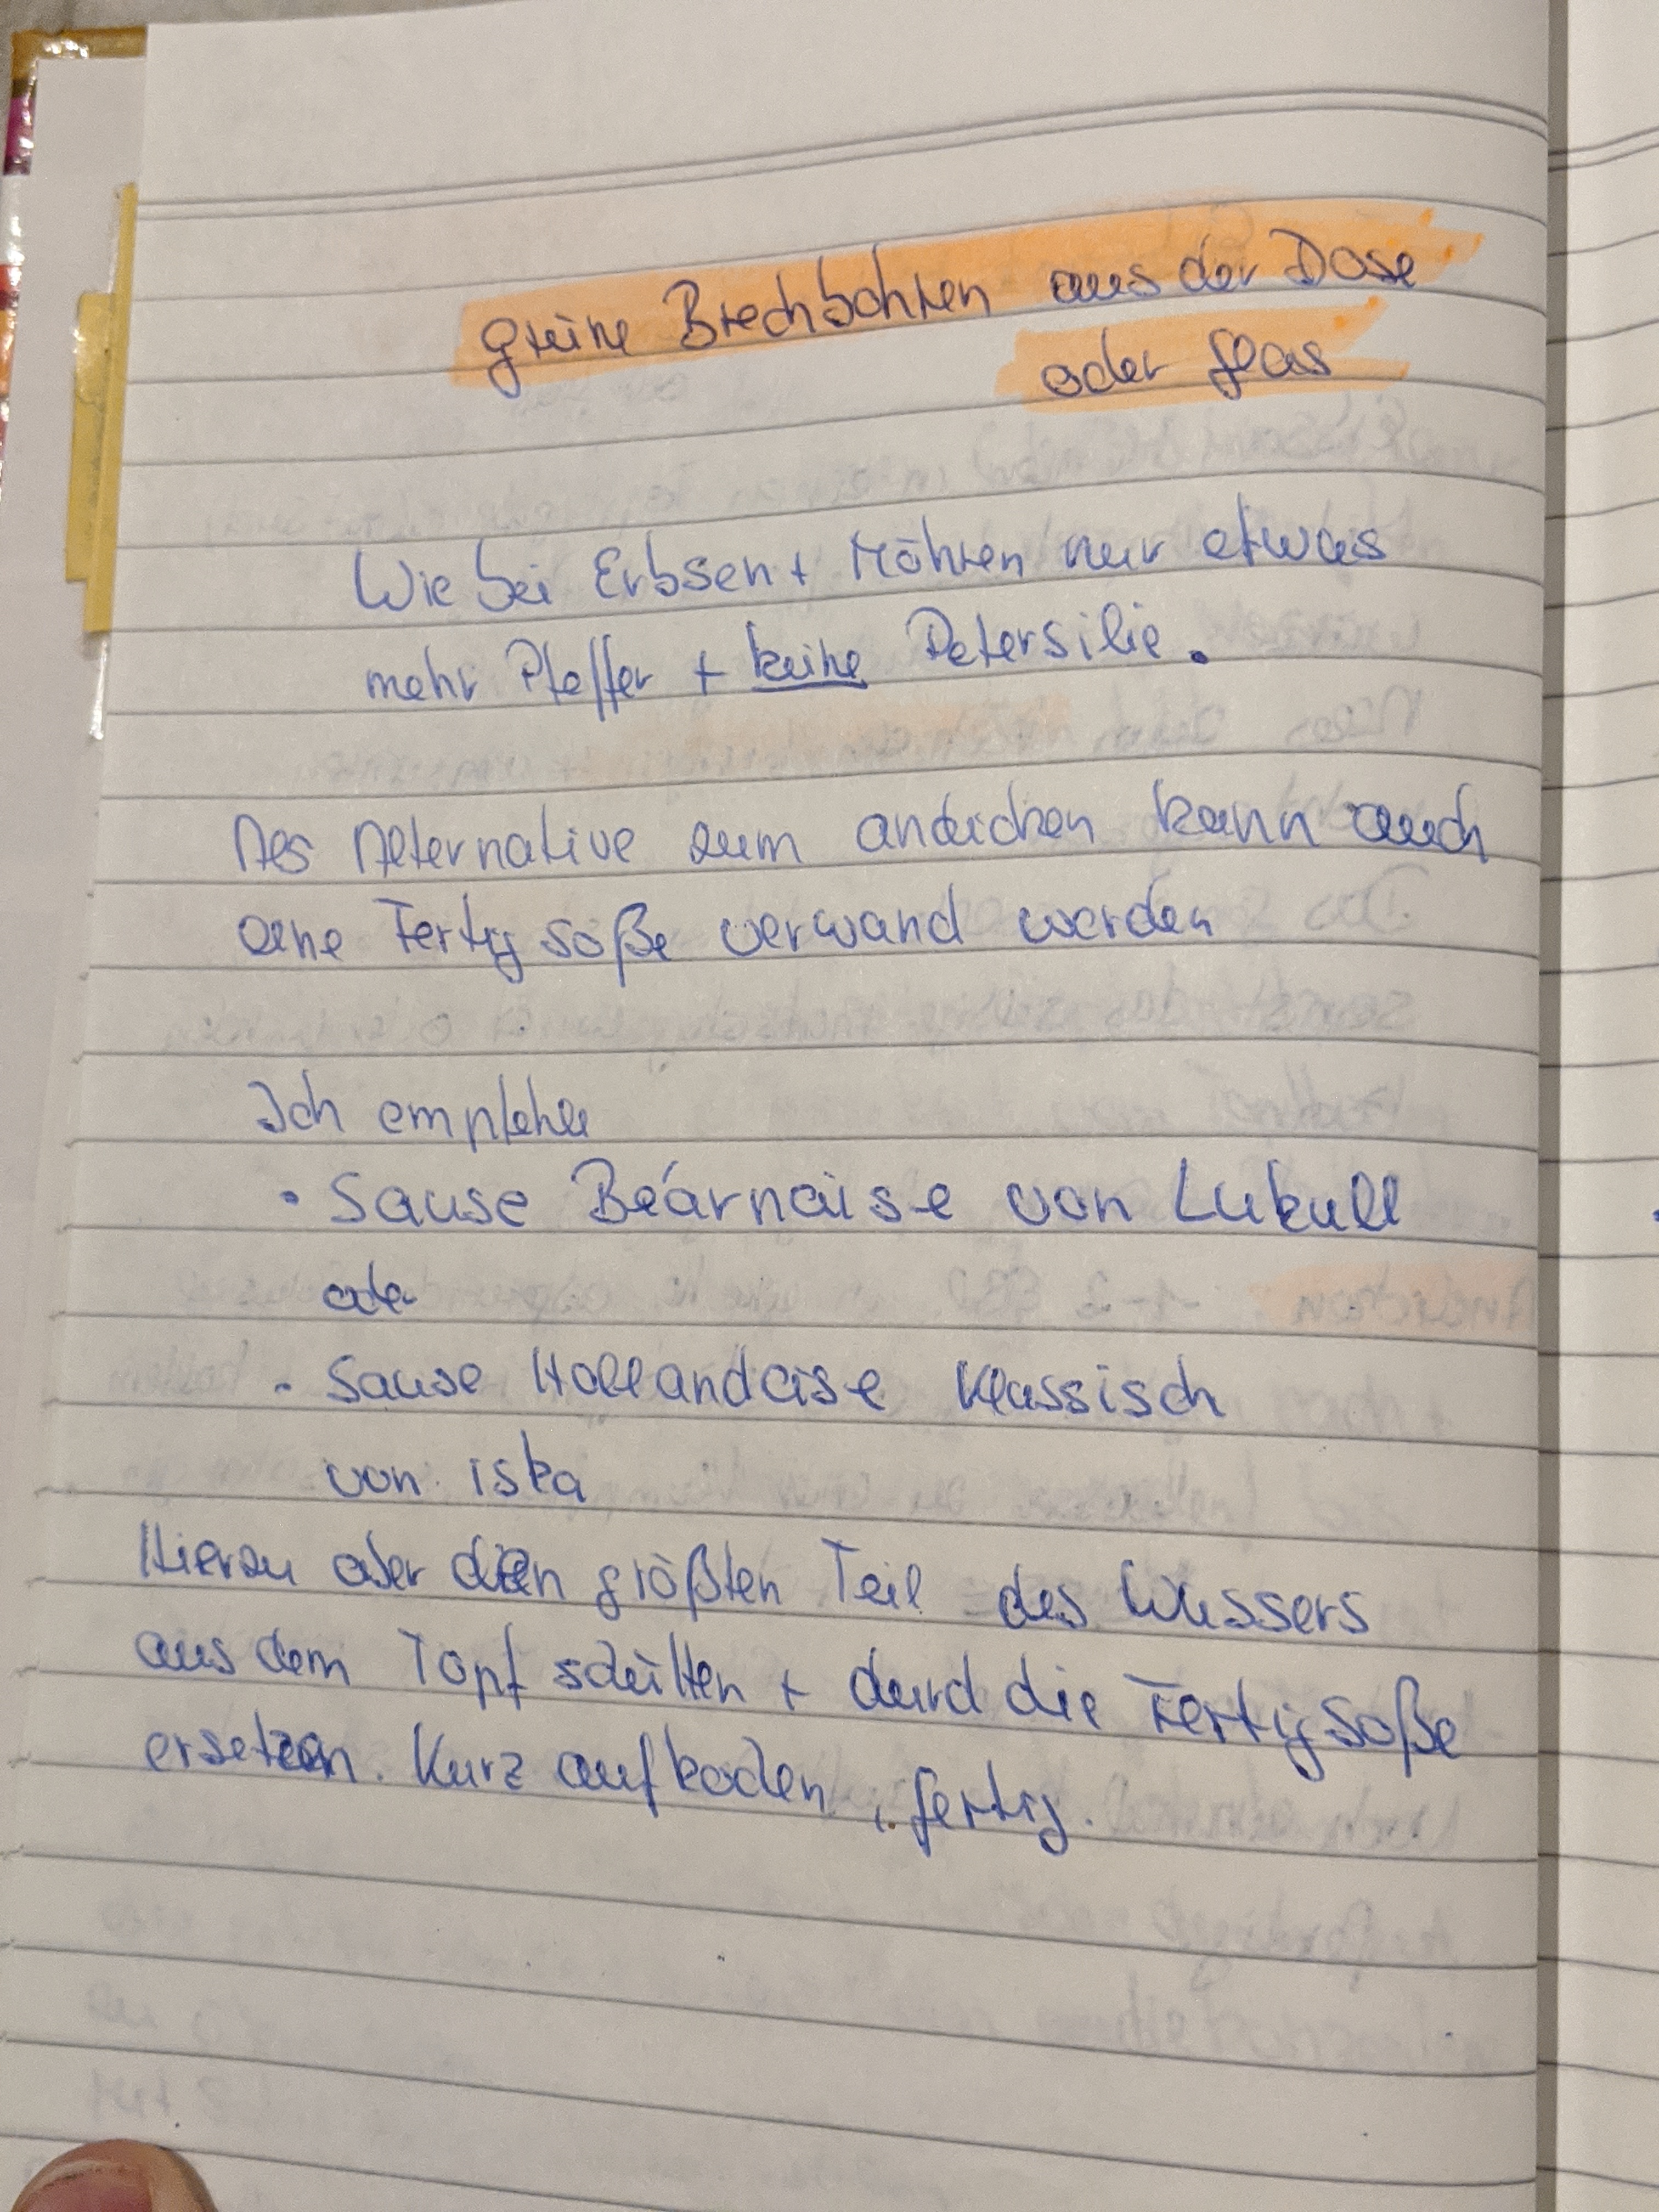 grüne Brechbohnen aus der Dose
oder Glas
Wie bei Erbsen + Möhren nur etwas
mehr Pfeffer + keine Petersilie.
Als Alternative zum andicken kann auch
eine Fertigsoße verwand werden
Ich empfehle
• Sause Beárnaise von Lukull
oder
- Sause Hollandaise Klassisch
von iska
Hierzu aber den größten Teil des Wassers
aus dem Topf schütten + durch die Fertigsoße
ersetzen. Kurz aufkochen, fertig.